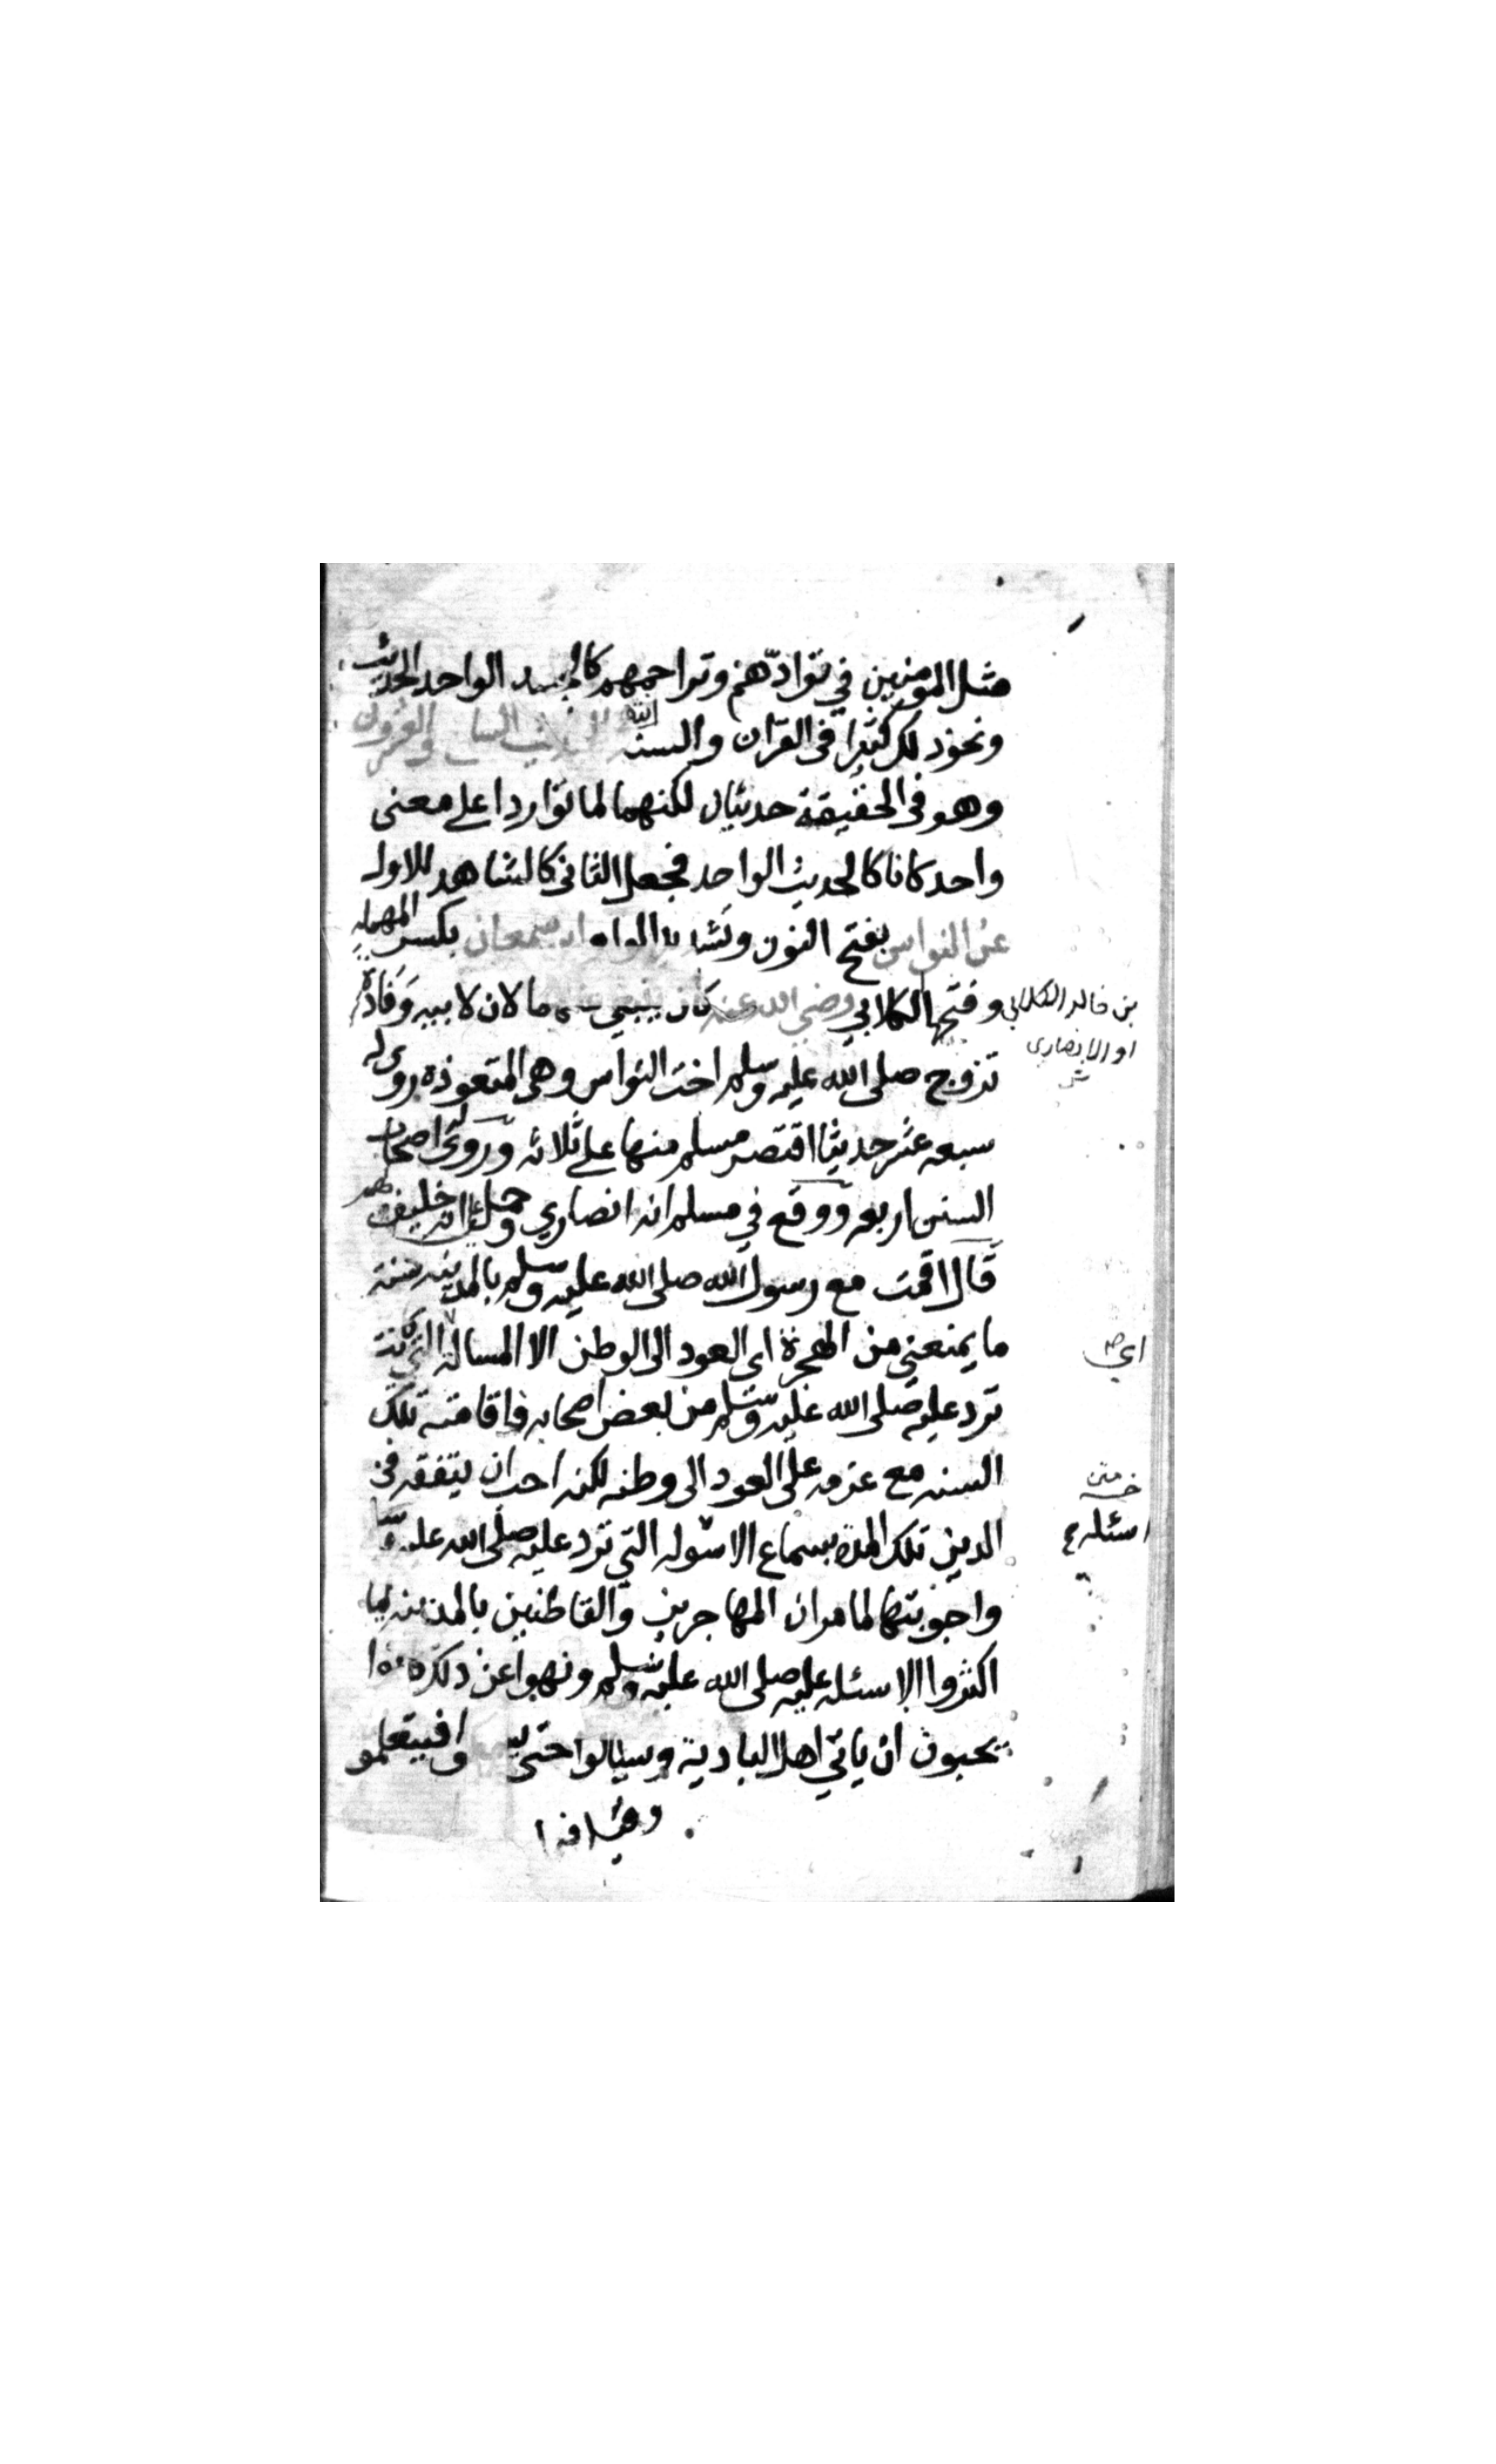 مثل المومنين في توادّهم وتراحمهم كالجسد الواحد الحديث
ونحو ذلك كثيرا في القرآن والسنة الله الحديث السابع والعشرون
وهو في الحقيقة حديثان لكنهما لما تواردا على معنى
واحد كانا كالحديث الواحد فجعل الثاني كالشاهد للاول
عن النواس بفتح النون وتشديد الواو ابن سمعان بكسر المهملة
وفتحها الكلابي رضي الله عنه كان ينبغي عنهما لان لابيه وفادة
بن خالد الكلابي
او الانصاري
تزوج صلى الله عليه وسلم اخت النواس وهي المتعوذة روى له
سبعة عشر حديثا اقتصر مسلم منها على ثلاثة وروى له اصحاب
السنن اربعة ووقع في مسلم انه انصاري وحمل على انه حليف لهم
قال اقمت مع رسول الله صلى الله عليه وسلم بالمدينة سنة
ما يمنعني من الهجرة اى العود الى الوطن الا المسالة التي كانت
اي
ترد عليه صلى الله عليه وسلم من بعض اصحابه فاقامته تلك
السنة مع عزمه على العود الى وطنه لكنه احب ان يتفقه في
متن
الدين تلك المدة بسماع الاسولة التي ترد عليه صلى الله عليه وسلم
اسئله
واجوبتها لما مر ان المهاجرين والقاطنين بالمدينة لما
اكثروا الاسئلة عليه صلى الله عليه وسلم ونهوا عن ذلك
يحبون ان ياتي اهل البادية ويسالوا حتى فيتعلمو